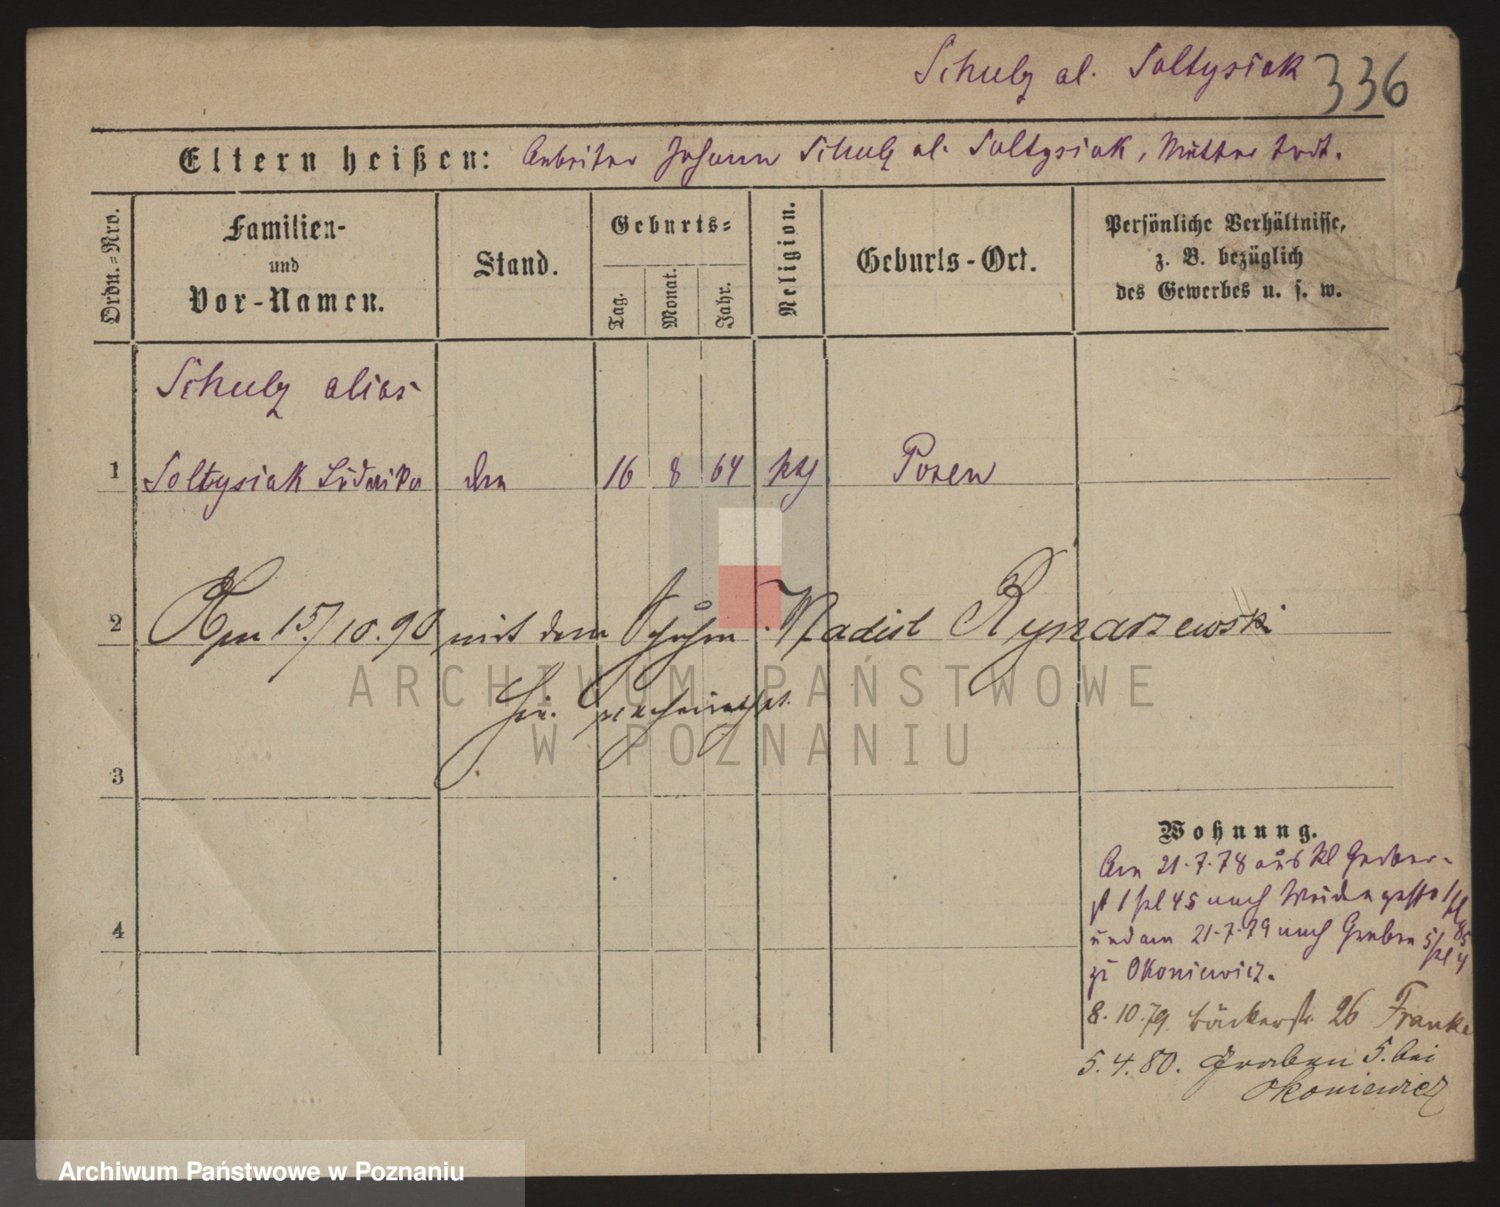 Schulz al. Soltysiak 336
Eltern heißen: Arbeiter Johann Schulz al. Soltysiak, Mutter todt.
Ordn.=Nro.
Familien-
und
Vor-Namen.
Stand.
Geburts=
Tag.
Monat.
Jahr.
Religion.
Geburts-Ort.
Persönliche Verhältnisse,
z. B. bezüglich
des Gewerbes u. s. w.
Schulz alias
1 Soltysiak Ludwika 16 8 64 kth Posen
2 Am 15/10.90 mit dem Schuhm. Wladisl Rynarzewski
hier verheirathet.
3
4
Wohnung.
Am 21.7.78 aus kl Gerber-
st 1 bei 45 nach Weidengasse
und am 21.7.79 nach Graben 5
zu Okoniewicz.
8.10.79. Bäckerstr. 26 Franke
5.4.80. Graben 5. bei
Okoniewicz
ARCHIWUM PAŃSTWOWE
W POZNANIU
Archiwum Państwowe w Poznaniu